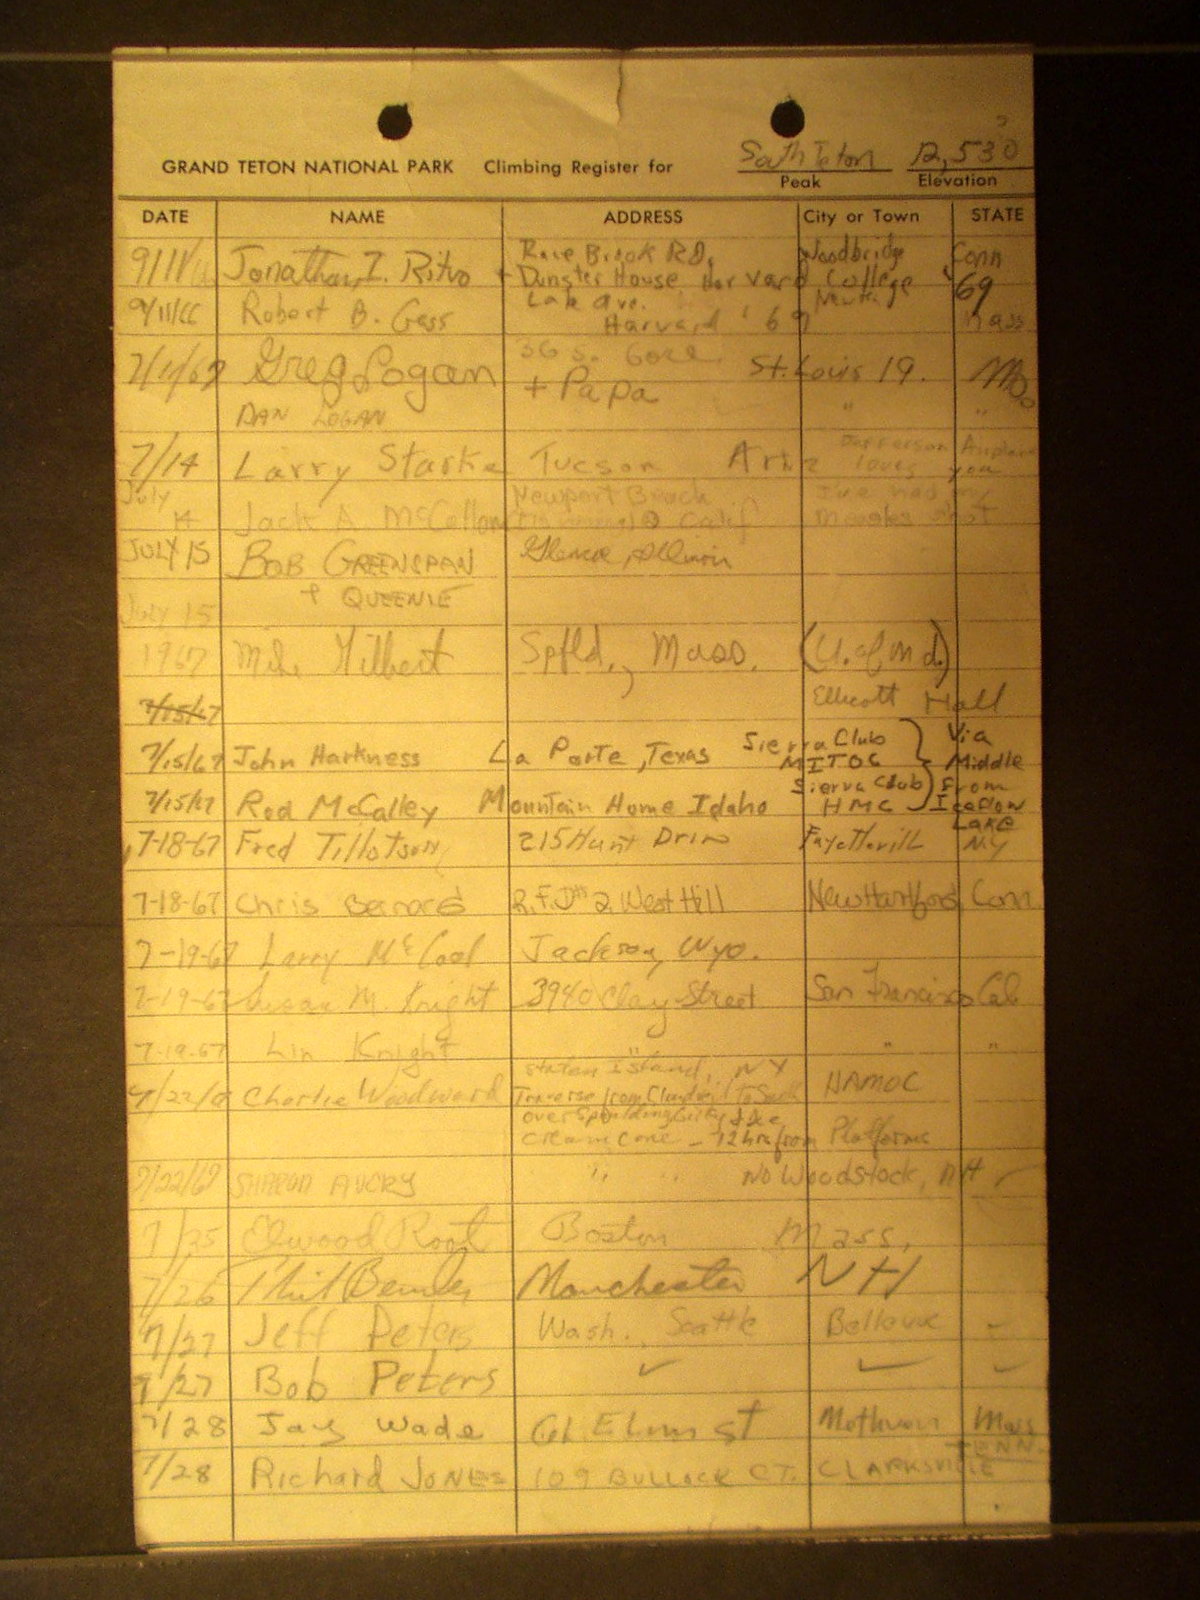 GRAND TETON NATIONAL PARK Climbing Register for South Teton 12,530
Peak Elevation
DATE NAME ADDRESS City or Town STATE
9/11/ Jonathan I. Ritvo Brook RD. Woodbridge Conn
+ Dunster House Harvard College '69
9/11/66 Robert B. Gass Lake Ave. Harvard '69 Mass
Greg Logan 36 S. Gore St. Louis 19. Mo.
+ Papa
DAN LOGAN " "
7/14 Larry Starke Tucson Ariz Jefferson Airplane loves you
July 14 Jack A. McCollom Newport Beach Calif I've had my
JULY 15 BOB GREENSPAN Glencoe, Illinois
+ QUEENIE
July 15
1967 Mike Gilbert Spfld., Mass. (U. of Md.)
Ellicott Hall
7/15/67
7/15/67 John Harkness La Porte, Texas Sierra Club MITOC } Via Middle
7/15/67 Rod McCalley Mountain Home Idaho Sierra Club HMC } From Icefloe Lake
7-18-67 Fred Tillotson 215 Hunt Drive Fayetteville NY
7-18-67 Chris Bernard R.F.D. #2 West Hill New Hartford, Conn.
7-19-67 Larry McCool Jackson, Wyo.
7-19-67 Susan M. Knight 3940 Clay Street San Francisco Cal
7-19-67 Lin Knight " " "
7/22/6 Charlie Woodward Staten Island, NY NAMOC
Traverse from Cloudveil to South
over Spalding Gilkey & Ice
Cream Cone - 12 hrs from Platforms
7/22/67 SHARON AVERY " " No Woodstock, NH
7/25 Elwood Root Boston Mass,
7/26 Phil Manchester NH
7/27 Jeff Peters Wash. Seattle Bellevue -
7/27 Bob Peters ✓ ✓ ✓
7/28 Jay Wade 61 Elm St Methuen Mass
7/28 Richard JONES 109 BULLOCK CT. CLARKSVILLE TENN.